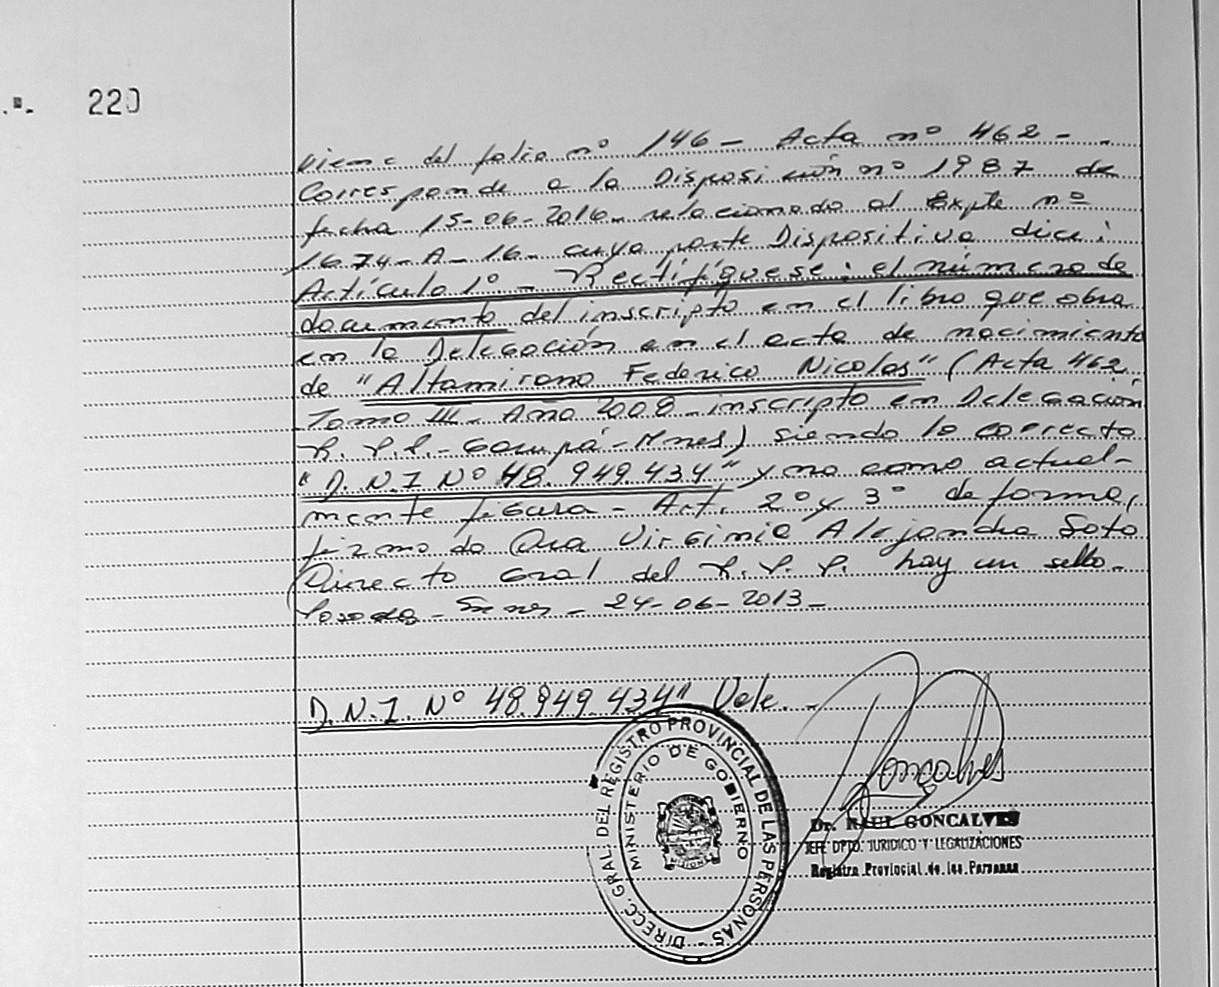 220
Viene del folio nº 146 - Acta nº 462 -
Corresponde a la Disposición nº 1987 de
fecha 15-06-2016 relacionado al Expte nº
1674-A-16- cuya parte Dispositiva dice:
Artículo 1º - Rectifíquese: el número de
documento del inscripto en el libro que obra
en la Delegación en el acta de nacimiento
de "Altamirano Federico Nicolas" (Acta 462
Tomo III - Año 2008 - inscripto en Delegación
R.P.P. - Garupá - Mnes) siendo lo correcto
"D.N.I Nº 48.949.434" y no como actual-
mente figura - Art. 2º y 3º de forma,
firmado Dra Virginia Alejandra Soto
Directo Gral del R.P.P. hay un sello.
Posadas - 24-06-2013 -
D.N.I. Nº 48.949.434" Vale. -
DIRECC. GRAL. DEL REGISTRO PROVINCIAL DE LAS PERSONAS -
MINISTERIO DE GOBIERNO
MISIONES
Goncalves
Dr. RAUL GONCALVES
JEFE DPTO. JURIDICO Y LEGALIZACIONES
Registro Provincial de las Personas